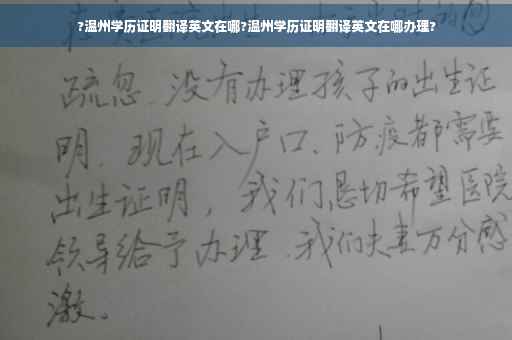 ?温州学历证明翻译英文在哪?温州学历证明翻译英文在哪办理?
疏忽、没有办理孩子的出生证
明、现在入户口、防疫都需要
出生证明，我们恳切希望医院
领导给予办理、我们夫妻万分感
激。